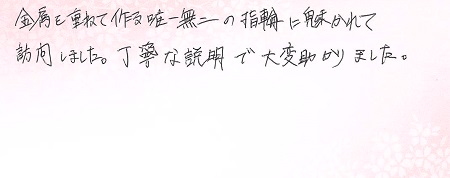 金属を重ねて作る唯一無二の指輪に魅かれて
訪問しました。丁寧な説明で大変助かりました。